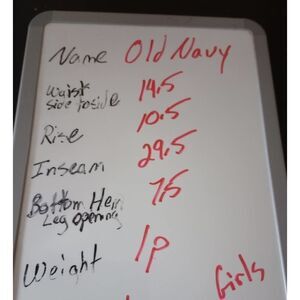 Name Old Navy
Waist
side to side 14.5
Rise 10.5
Inseam 29.5
Bottom Hem
Leg opening 7.5
Weight 1p
Girls